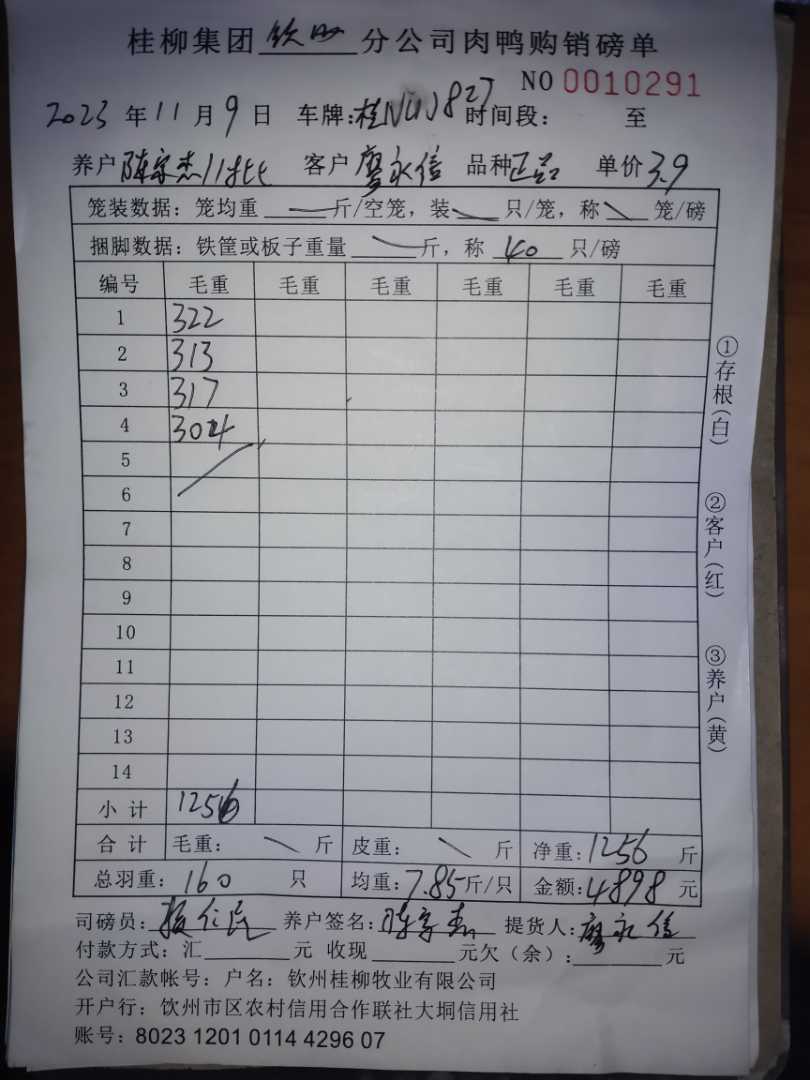 桂柳集团 钦州 分公司肉鸭购销磅单
NO 0010291
2023 年 11 月 9 日 车牌:桂NUU827 时间段: 至
养户 陈家杰11批 客户 廖永信 品种 正品 单价 3.9
笼装数据: 笼均重 斤/空笼, 装 只/笼, 称 笼/磅
捆脚数据: 铁筐或板子重量 斤, 称 40 只/磅
编号 毛重 毛重 毛重 毛重 毛重 毛重
1 322
2 313
3 317
4 304
5
6
7
8
9
10
11
12
13
14
小计 1256
合计 毛重: 斤 皮重: 斤 净重: 1256 斤
总羽重: 160 只 均重: 7.85 斤/只 金额: 4898 元
司磅员: 仁民 养户签名: 陈家杰 提货人: 廖永信
付款方式: 汇 元 收现 元欠(余): 元
公司汇款帐号: 户名: 钦州桂柳牧业有限公司
开户行: 饮州市区农村信用合作联社大垌信用社
账号: 8023 1201 0114 4296 07
①存根(白)
②客户(红)
③养户(黄)